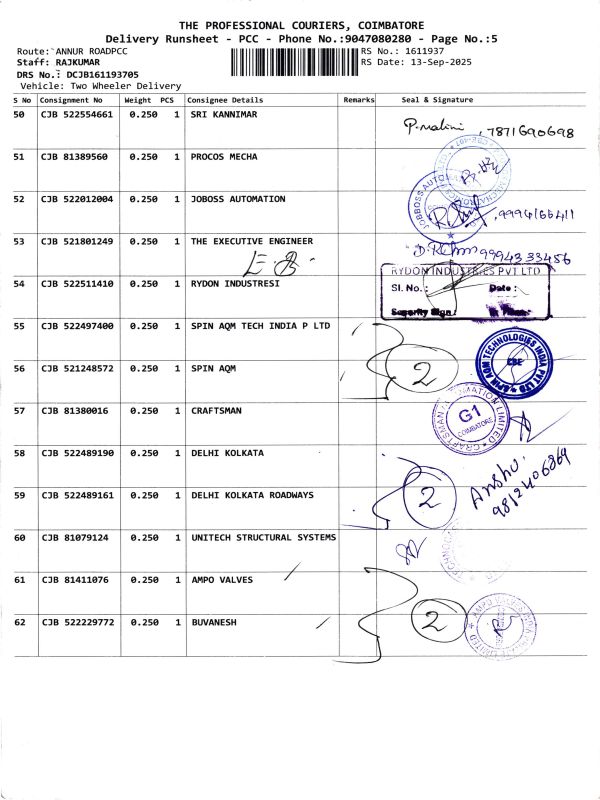 THE PROFESSIONAL COURIERS, COIMBATORE
Delivery Runsheet - PCC - Phone No.:9047080280 - Page No.:5
Route: ANNUR ROADPCC
RS No.: 1611937
Staff: RAJKUMAR
RS Date: 13-Sep-2025
DRS No.: DCJB161193705
Vehicle: Two Wheeler Delivery
S No Consignment No Weight PCS Consignee Details Remarks Seal & Signature
50 CJB 522554661 0.250 1 SRI KANNIMAR P.malini, 7871690698
51 CJB 81389560 0.250 1 PROCOS MECHA
52 CJB 522012004 0.250 1 JOBOSS AUTOMATION 9994166411
53 CJB 521801249 0.250 1 THE EXECUTIVE ENGINEER 9994333456
54 CJB 522511410 0.250 1 RYDON INDUSTRESI
RYDON INDUSTRIES PVT LTD
Sl. No.: Date :
Security Sign :
55 CJB 522497400 0.250 1 SPIN AQM TECH INDIA P LTD
56 CJB 521248572 0.250 1 SPIN AQM 2
SPIN AQM TECHNOLOGIES INDIA PVT LTD
CBE
57 CJB 81380016 0.250 1 CRAFTSMAN
CRAFTSMAN AUTOMATION LIMITED
G1
COIMBATORE
58 CJB 522489190 0.250 1 DELHI KOLKATA
59 CJB 522489161 0.250 1 DELHI KOLKATA ROADWAYS 2 Anshu.
9812406869
60 CJB 81079124 0.250 1 UNITECH STRUCTURAL SYSTEMS
61 CJB 81411076 0.250 1 AMPO VALVES
62 CJB 522229772 0.250 1 BUVANESH 2
AMPO VALVES INDIA PRIVATE LIMITED